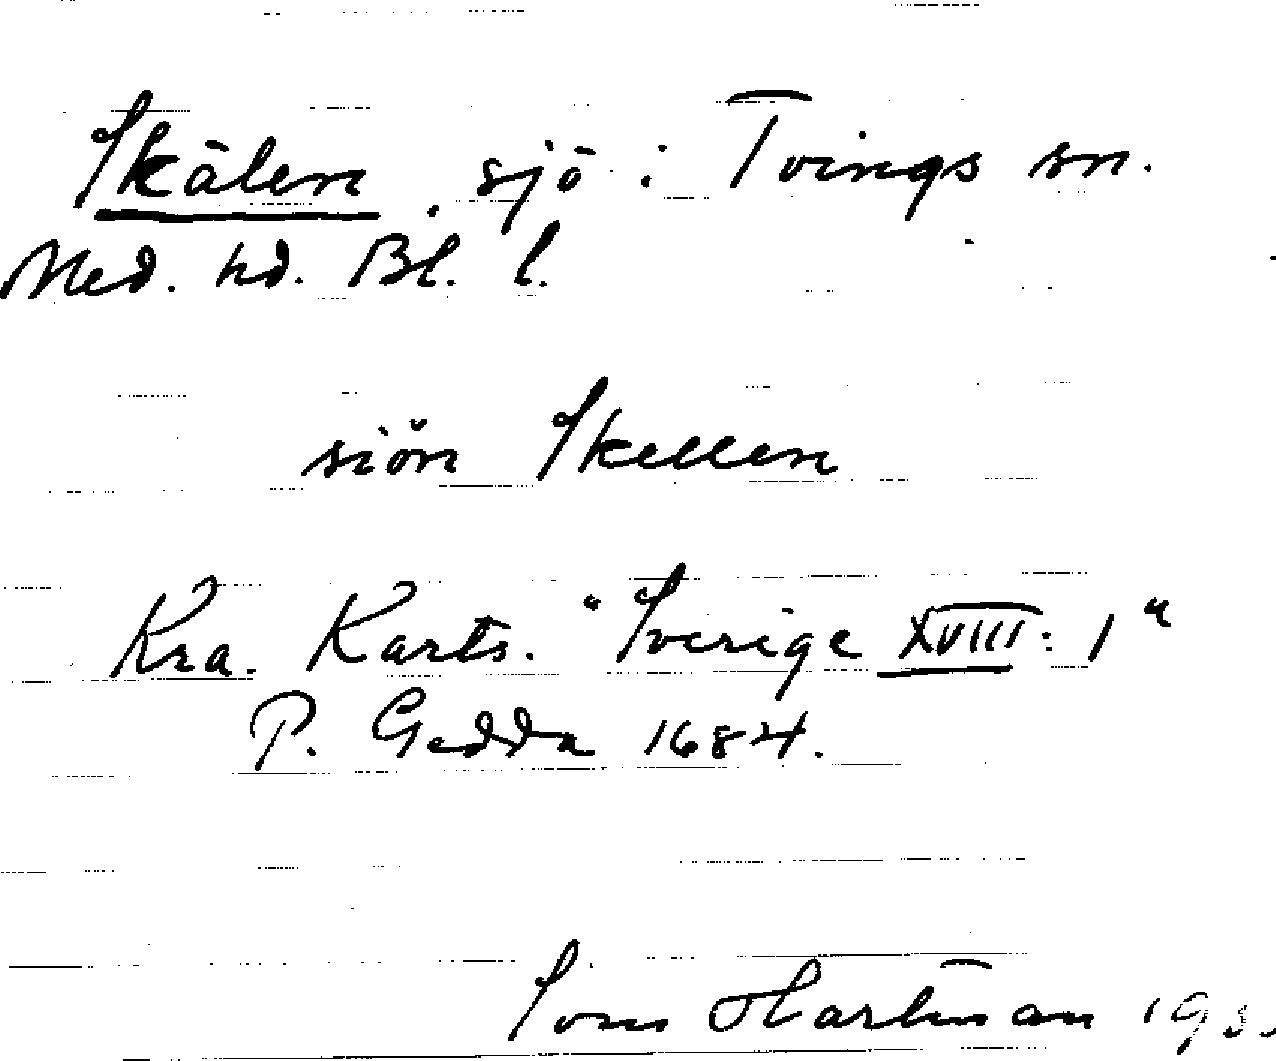 Skälen, sjö i Tvings sn.
Med. hd. Bl. l.
siön Skellen
Kra. Karts. "Sverige XVIII: 1"
P. Gedda 1684.
Hartman